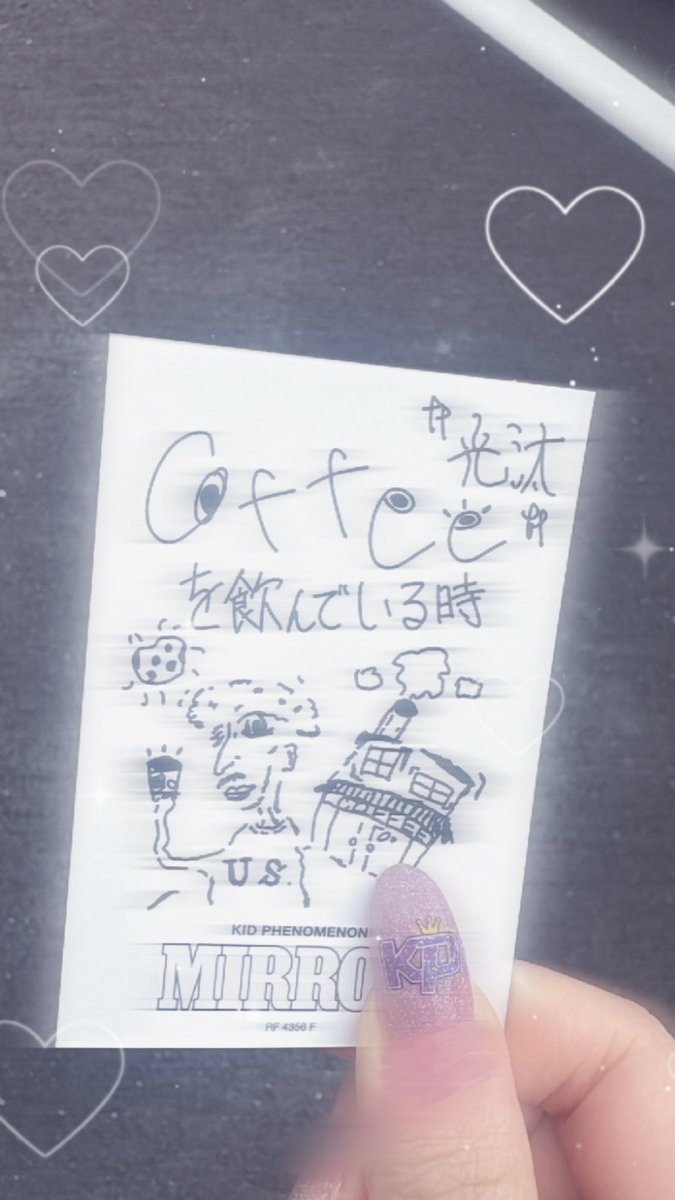 "光汰"
Coffee
を飲んでいる時
COFFEE
U S.
KID PHENOMENON
MIRRO
RF 4356 F
KP